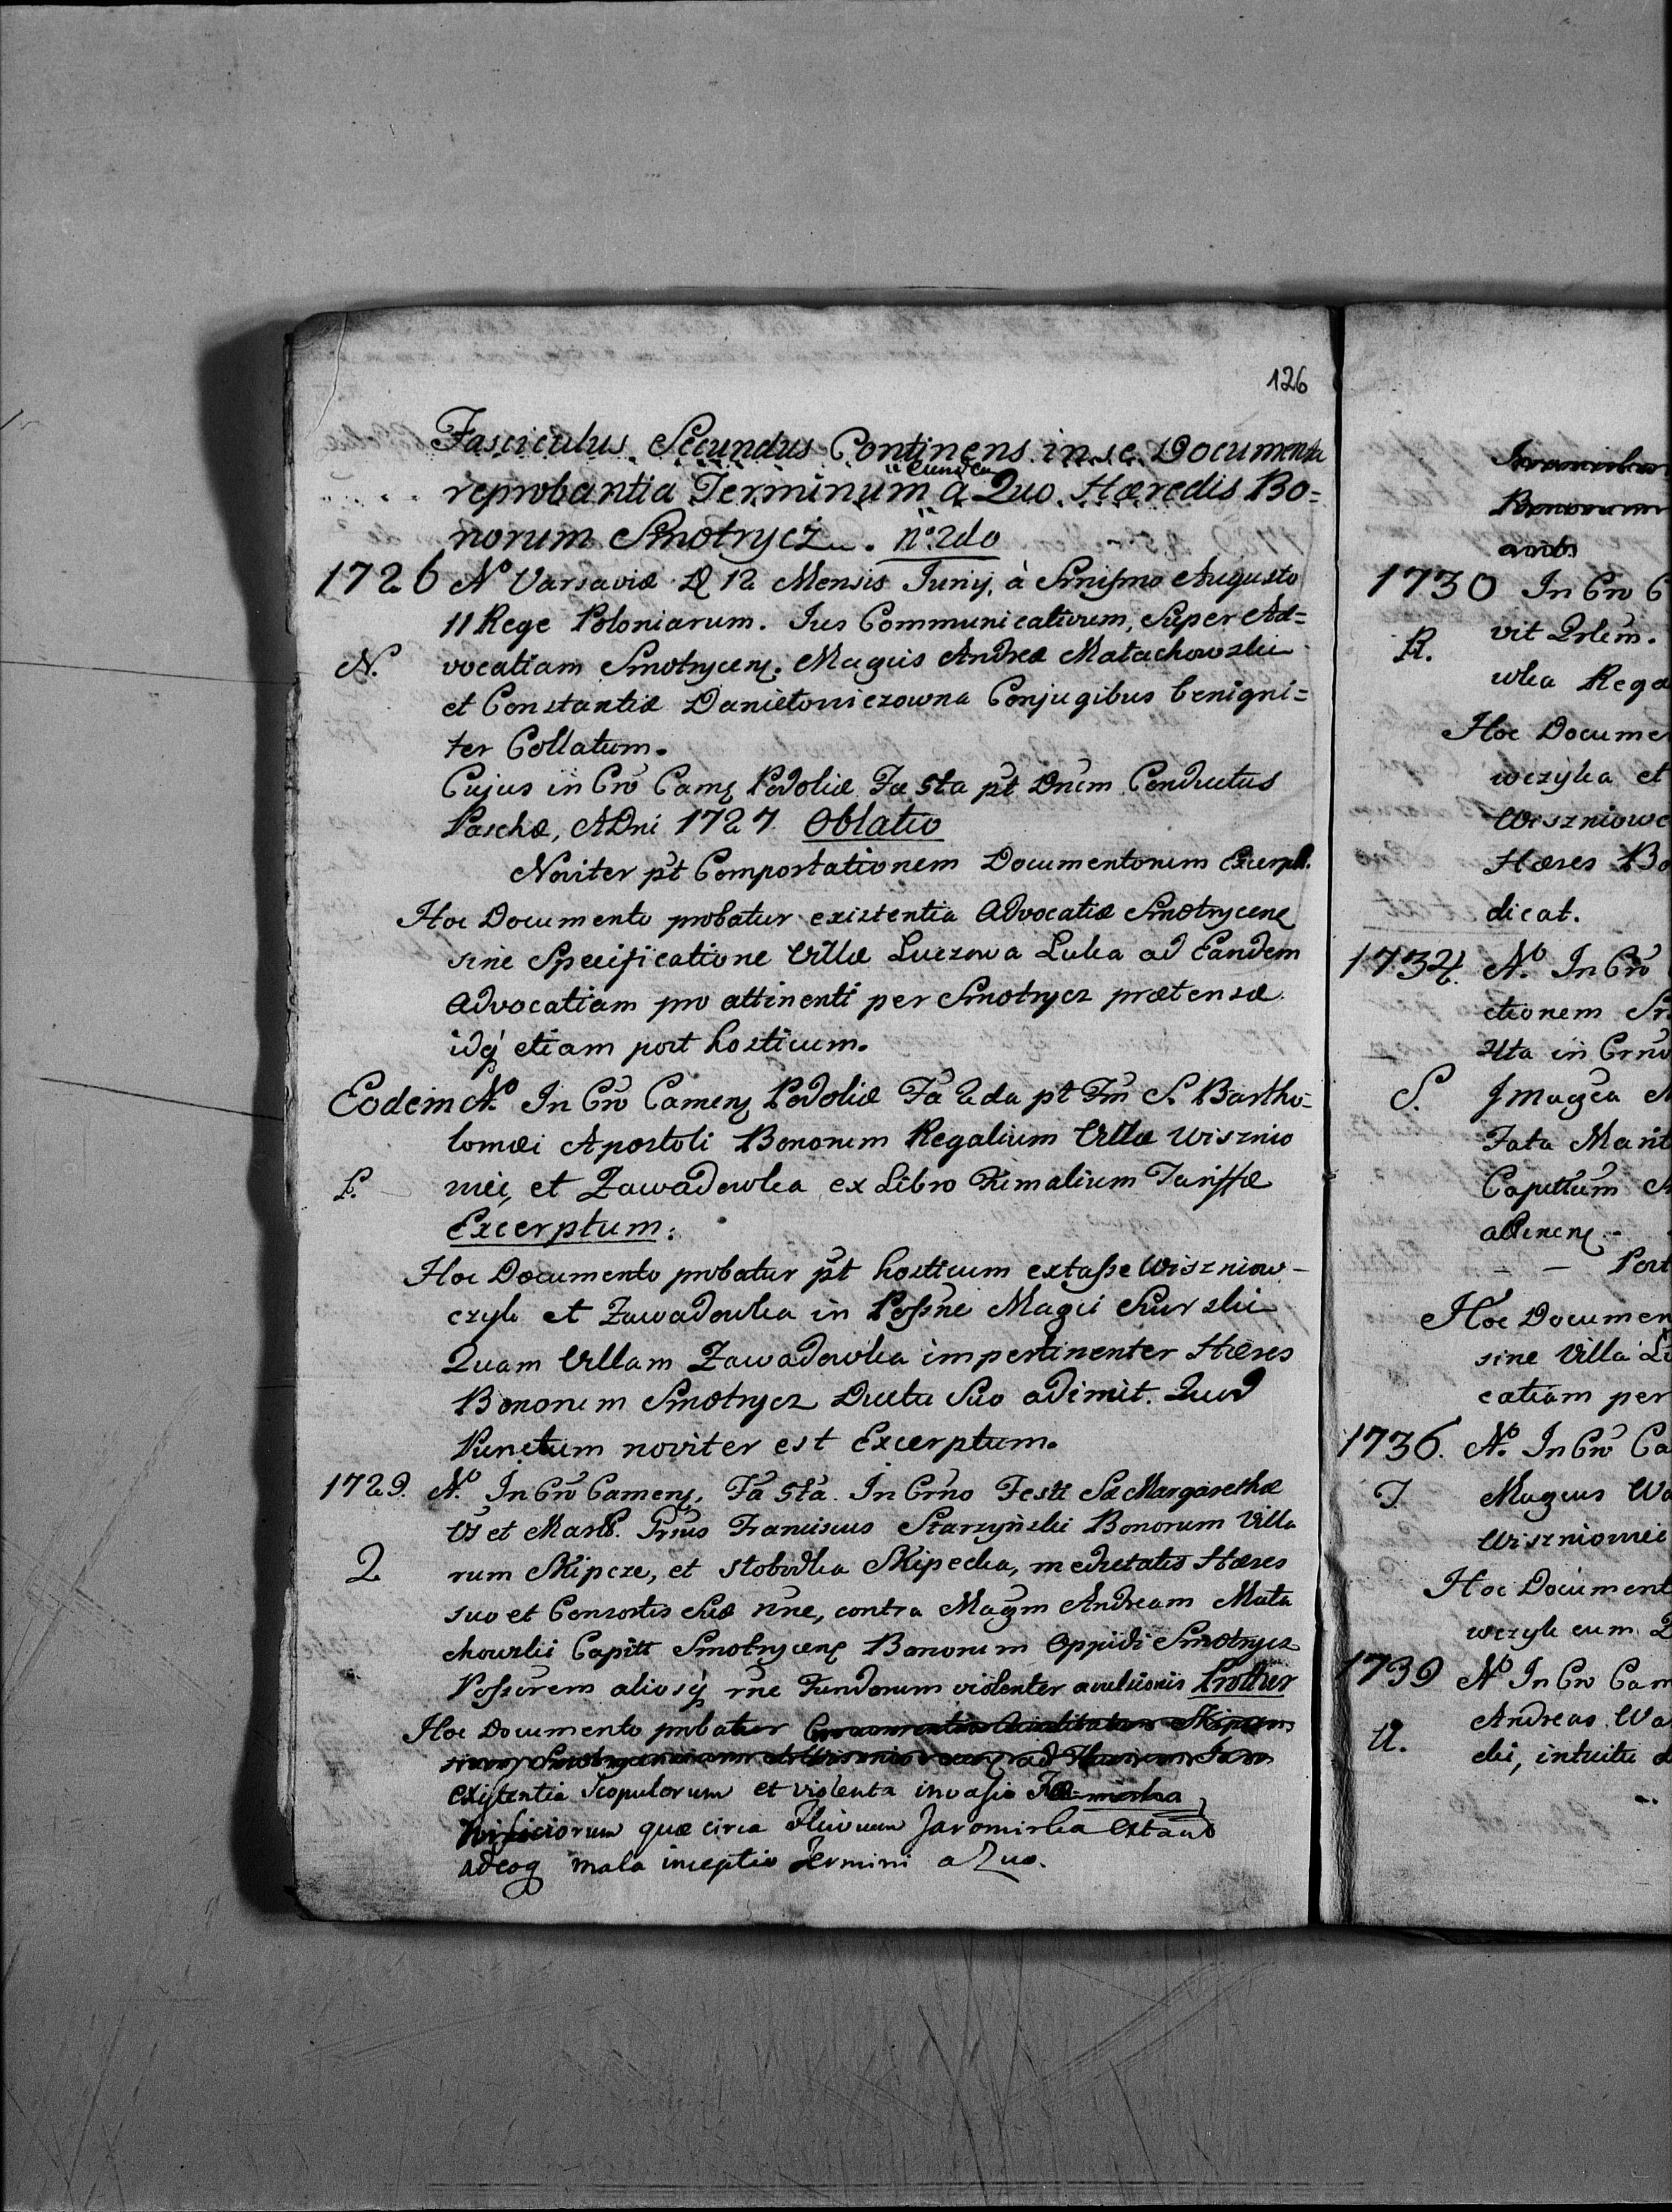 126
Fasciculus Secundus Continens in se Documenta
eundem
reprobantia Terminum à Quo Hæredis Bo=
norum Smotrycz. nº 2do
1726 Nº Varsaviæ D 12 Mensis Junij, à Srnissmo Augusto
II Rege Poloniarum. Jus Communicativum, Super Ad=
N. vocatiam Smotrycen. Magcis Andreæ Małachowski
et Constantiæ Daniełowiczowna Conjugibus benigni=
ter Collatum.
Cujus in Crō Camn Podoliæ Fa 5ta pt Dnem Conductus
Paschæ, ADni 1727 Oblatio
Noviter pt Comportationem Documentorum Excerpt.
Hoc Documento probatur existentia Advocatiæ Smotrycen
sine Specificatione Villæ Luczowa Luka ad Eandem
Advocatiam pro attinenti per Smotrycz prætensæ
idq́ etiam post hosticum.
Eodem Nº In Crō Camen Podoliæ Fa 2da pt Fm S. Bartho=
lomæi Apostoli Bonorum Regalium Villæ Wisznio
P. wei, et Zawadowka ex Libro Fumalium Tariffæ
Excerptum.
Hoc Documento probatur pt hosticum extasse Wiszniow-
czyk et Zawadowka in Possne Magci Skurski
Quam Villam Zawadowka impertinenter Hæres
Bonorum Smotrycz Ductu Suo adimit. Quod
Punctum noviter est Excerptum.
1729. Nº In Crō Camen, Fa 5ta In Crno Festi Sæ Margarethæ
Vs et Mart. Grsus Franciscus Starzyński Bonorum Villa
Q rum Skipcze, et słobodka Skipecka, medietatis Hæres
suo et Consortis Suæ nne, contra Magm Andream Mała
chowski Capitt Smotrycen Bonorum Oppidi Smotrycz
Possorem aliosq́ rne Fundorum violenter avulsionis Prottur
Hoc Documento probatur
existentia Scopulorum et violenta invasio
quæ circa fluvium Jaromirka extant
adeoq mala inceptio Termini a Quo.
Bonorum
1730 In Crō C
R. vit Qrlem.
wka Rega
Hoc Docume
wczyka et
Wiszniowc
Hæres Bo
dicat.
1734. Nº In Crō
ctionem Sr
5ta in Crno
S. Jmagca M
Fata Marit
Capittum
attinen
Post
Hoc Documen
sine Villa Lu
catiam per
1736. Nº In Crō Ca
T. Magcus Wa
Wiszniowei
Hoc Document
wczyk cum
1739 Nº In Crō Cam
Andreas Wa
U. cki, intuitu d